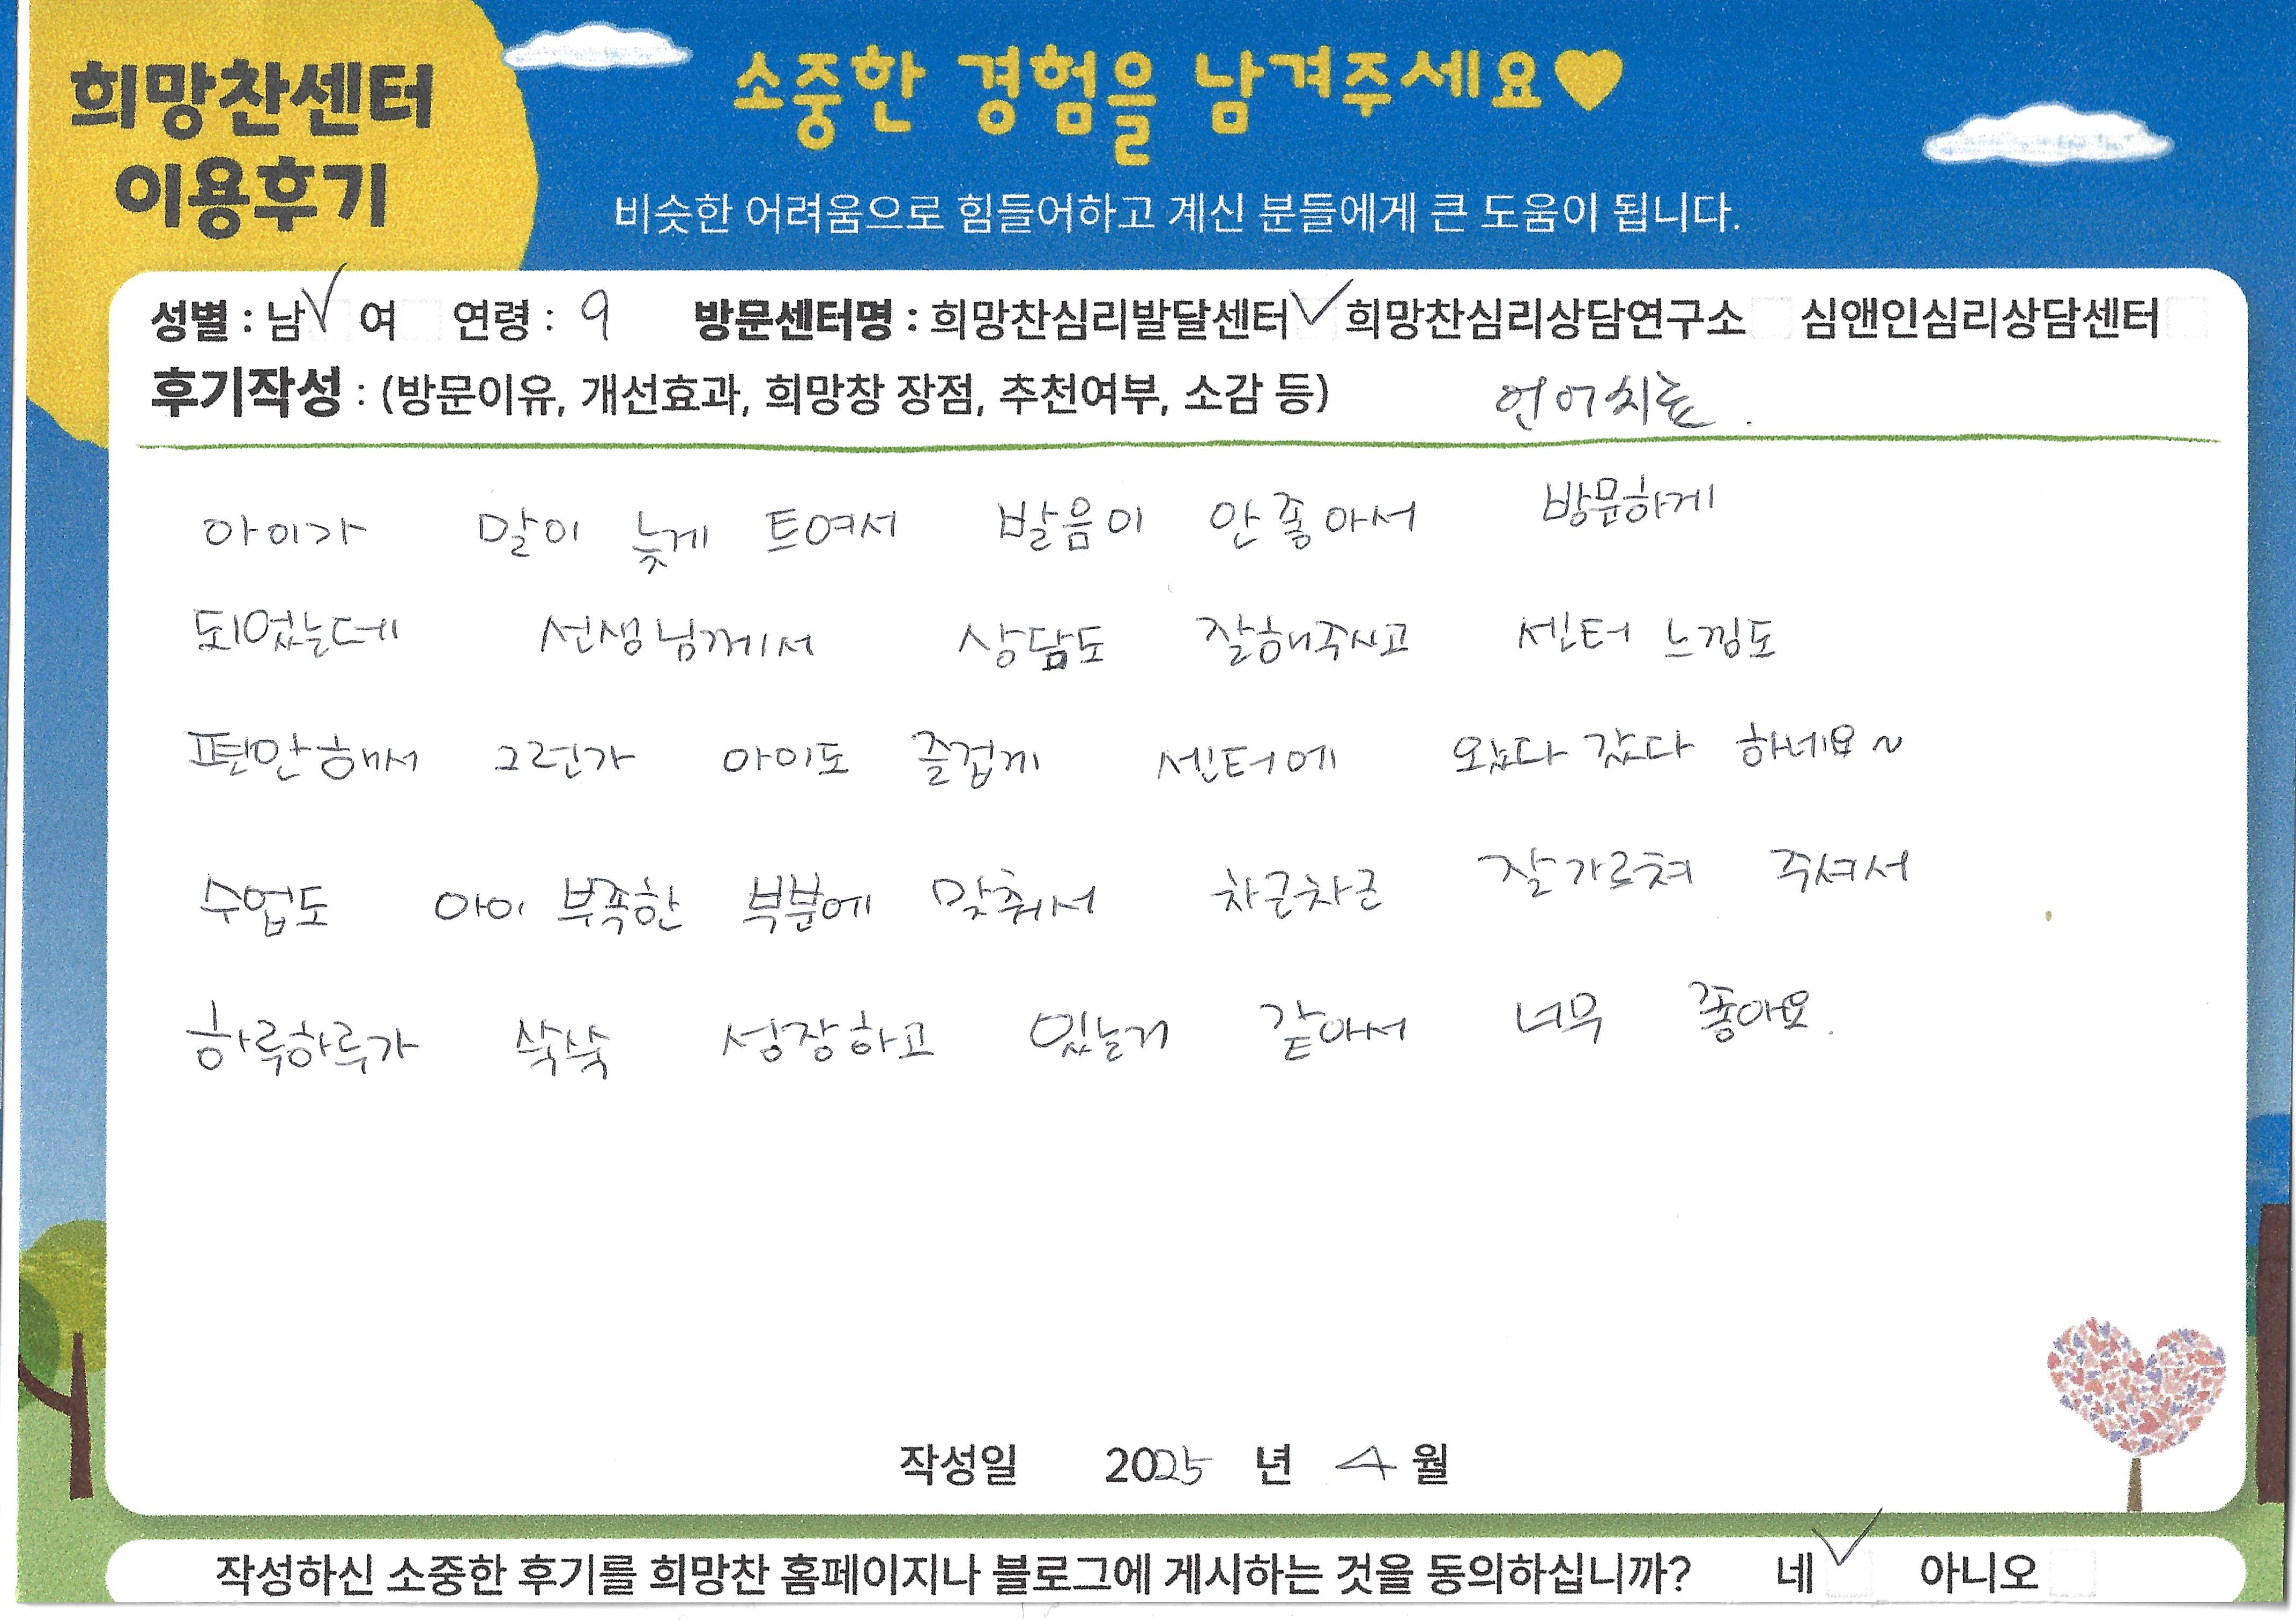 희망찬센터
이용후기
소중한 경험을 남겨주세요♥
비슷한 어려움으로 힘들어하고 계신 분들에게 큰 도움이 됩니다.
성별 : 남✓ 여 연령 : 9 방문센터명 : 희망찬심리발달센터✓ 희망찬심리상담연구소 심앤인심리상담센터
후기작성 : (방문이유, 개선효과, 희망창 장점, 추천여부, 소감 등) 언어치료.
아이가 말이 늦게 트여서 발음이 안좋아서 방문하게
되었는데 선생님께서 상담도 잘해주시고 센터 느낌도
편안해서 그런가 아이도 즐겁게 센터에 왔다 갔다 하네요~
수업도 아이 부족한 부분에 맞춰서 차근차근 잘가르쳐 주셔서
하루하루가 쑥쑥 성장하고 있는거 같아서 너무 좋아요.
작성일 2025 년 4 월
작성하신 소중한 후기를 희망찬 홈페이지나 블로그에 게시하는 것을 동의하십니까? 네✓ 아니오